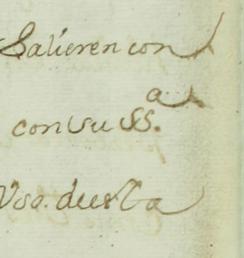 Salieren con
con su SS.ª
Vso. duerta